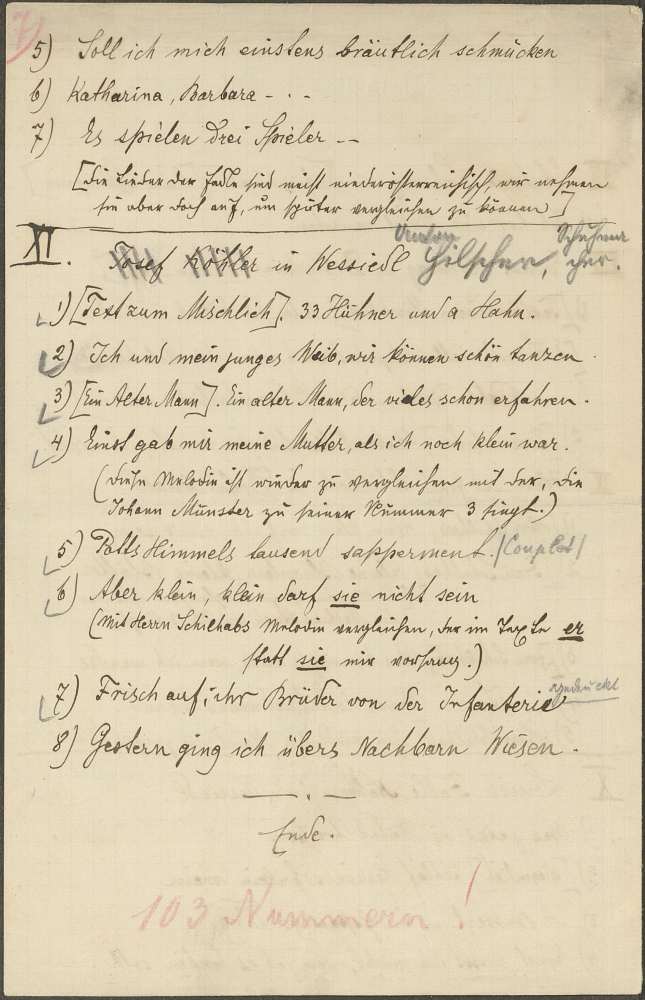 5) Soll ich mich einstens bräutlich schmücken
6) Katharina, Barbara - . -
7) Es spielen drei Spieler --
[Die Lieder der Fadle sind meist niederösterreichisch, wir nehmen
sie aber doch auf, um später vergleichen zu können]
XI. Josef Köhler in Wessiedl Anton Hilscher, Schuhmacher.
1) [Text zum Mischlich]. 33 Hühner und a Hahn.
2) Ich und mein junges Weib, wir können schön tanzen.
3) [Ein Alter Mann]. Ein alter Mann, der vieles schon erfahren.
4) Einst gab mir meine Mutter, als ich noch klein war.
(Diese Melodie ist wieder zu vergleichen mit der, die
Johann Münster zu seiner Nummer 3 singt.)
5) Potts Himmels tausend sapperment. /Couplet/
6) Aber klein, klein darf sie nicht sein
(Mit Herrn Schilhabs Melodie vergleichen, der im Texte er
statt sie mir vorsang.)
7) Frisch auf, ihr Brüder von der Infanterie gedruckt
8) Gestern ging ich übers Nachbarn Wiesen.
Ende.
103 Nummern!